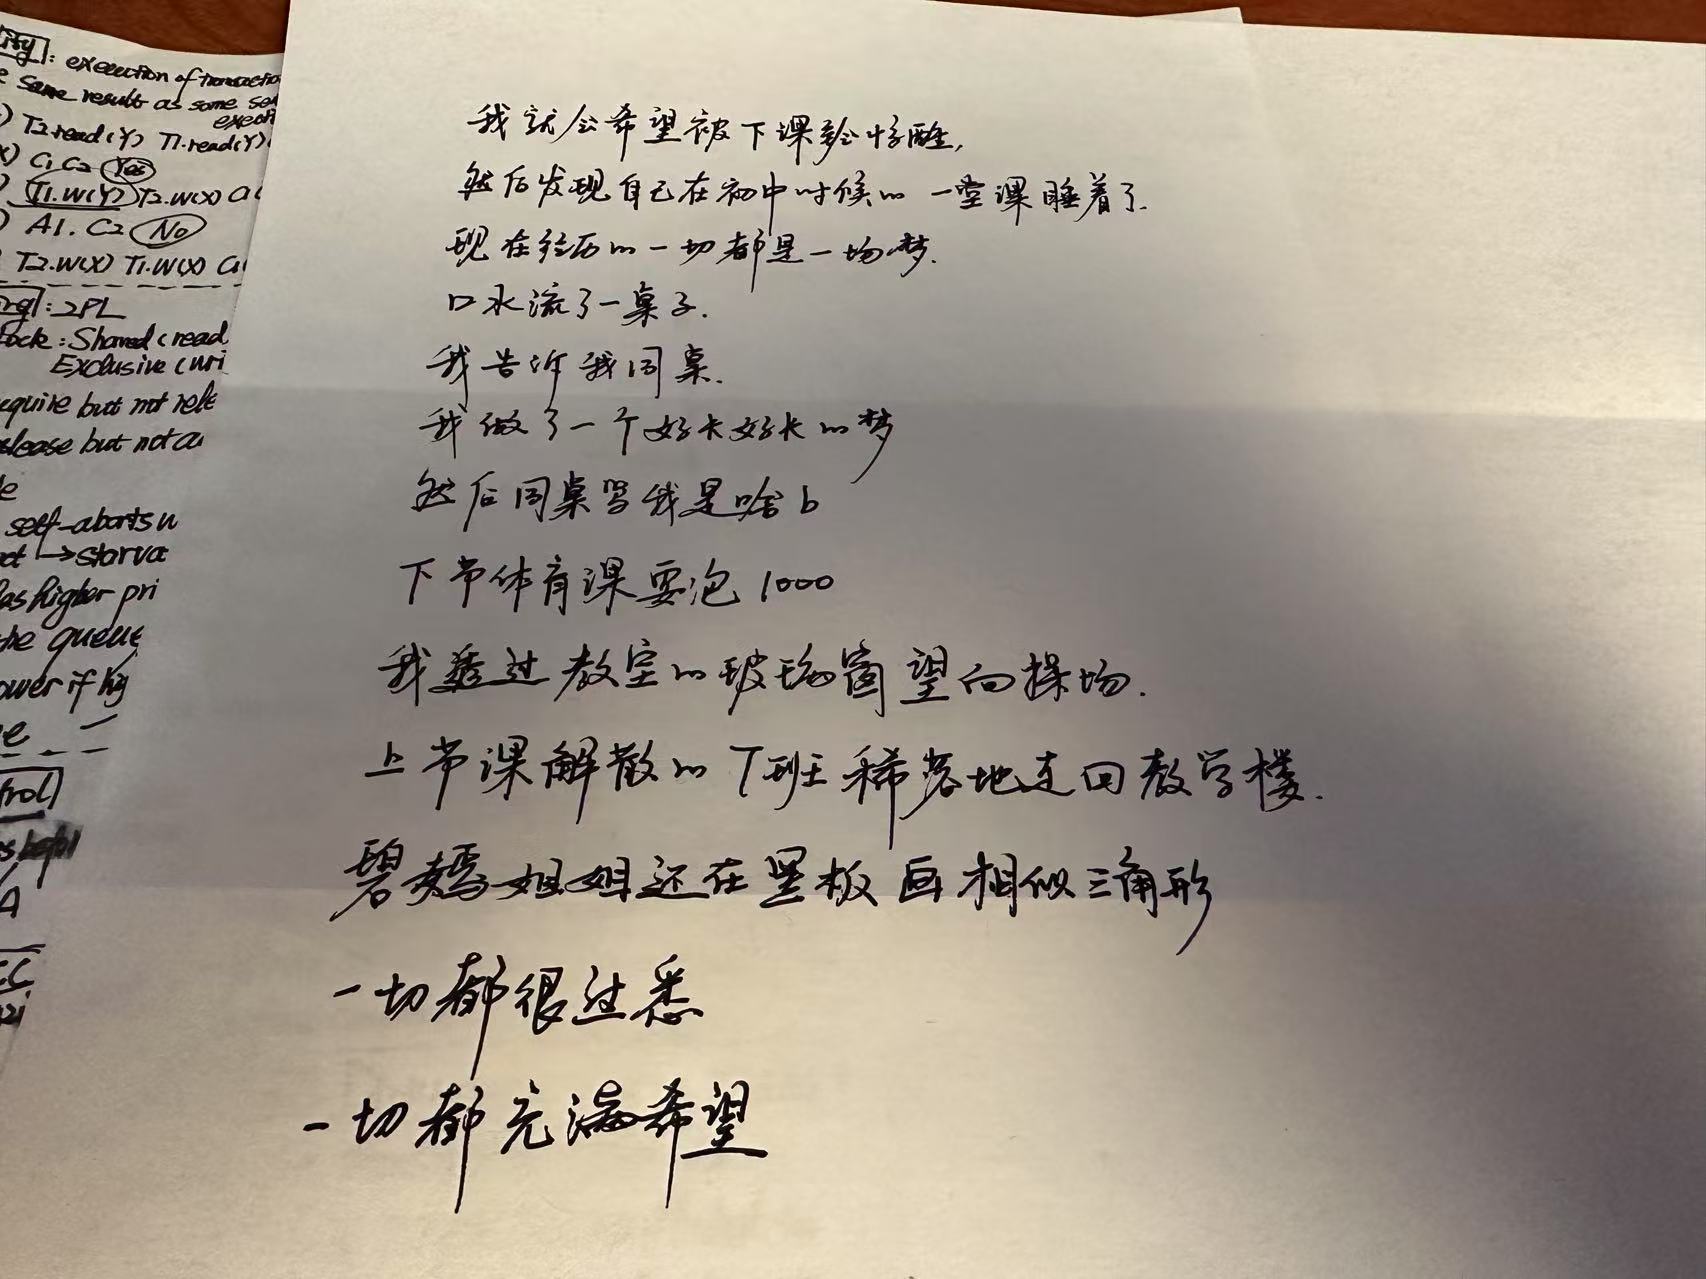 ity : execution of transactio
same result as some se
execu
T2.read(Y) T1.read(Y)
C1.C2 Yes
T1.W(Y) T2.W(X) C1
A1. C2 No
T2.W(X) T1.W(X) C1
: 2PL
ock : Shared (read
Exclusive (wri
equire but not rele
elease but not a
self-aborts
→ starva
as higher pri
the queue
ower if hi
trol
A
CC
我就会希望被下课铃惊醒,
然后发现自己在初中时候的一堂课睡着了.
现在经历的一切都是一场梦.
口水流了一桌子.
我告诉我同桌.
我做了一个好长好长的梦
然后同桌骂我是啥b
下节体育课要泡1000
我透过教室的玻璃窗望向操场.
上节课解散的 7班稀落地走回教学楼.
碧嫣姐姐还在黑板画相似三角形
一切都很过悉
一切都充满希望